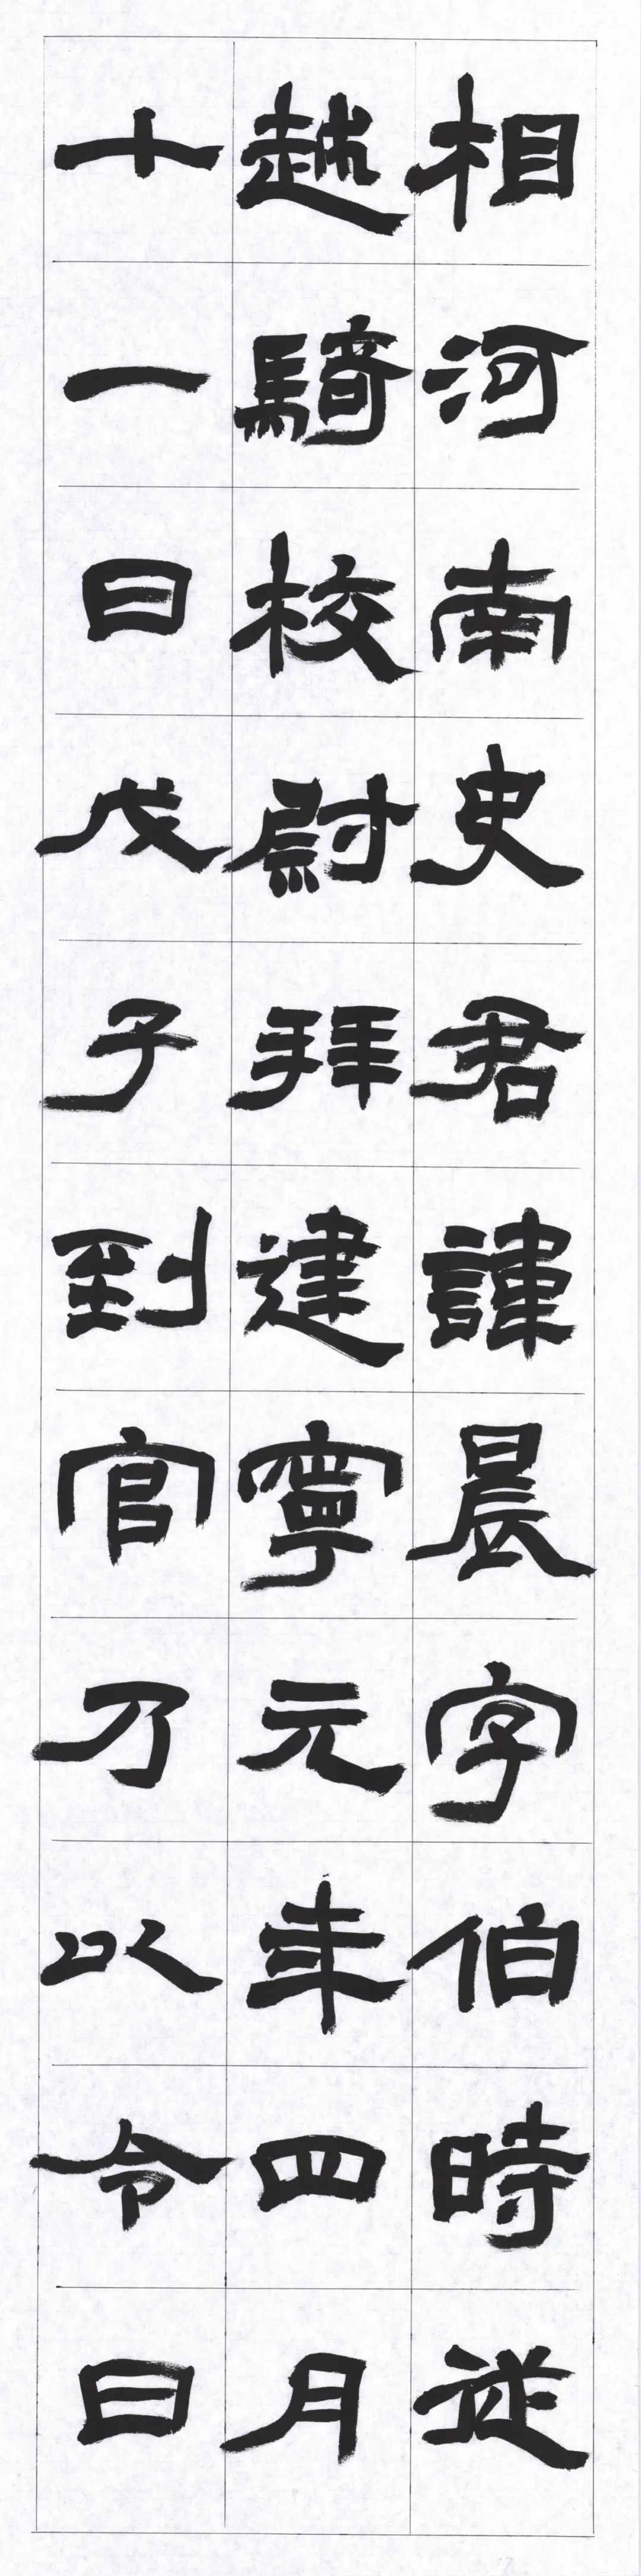 相河南史君諱晨字伯時從
越騎校尉拜建寧元年四月
十一日戊子到官乃以令日